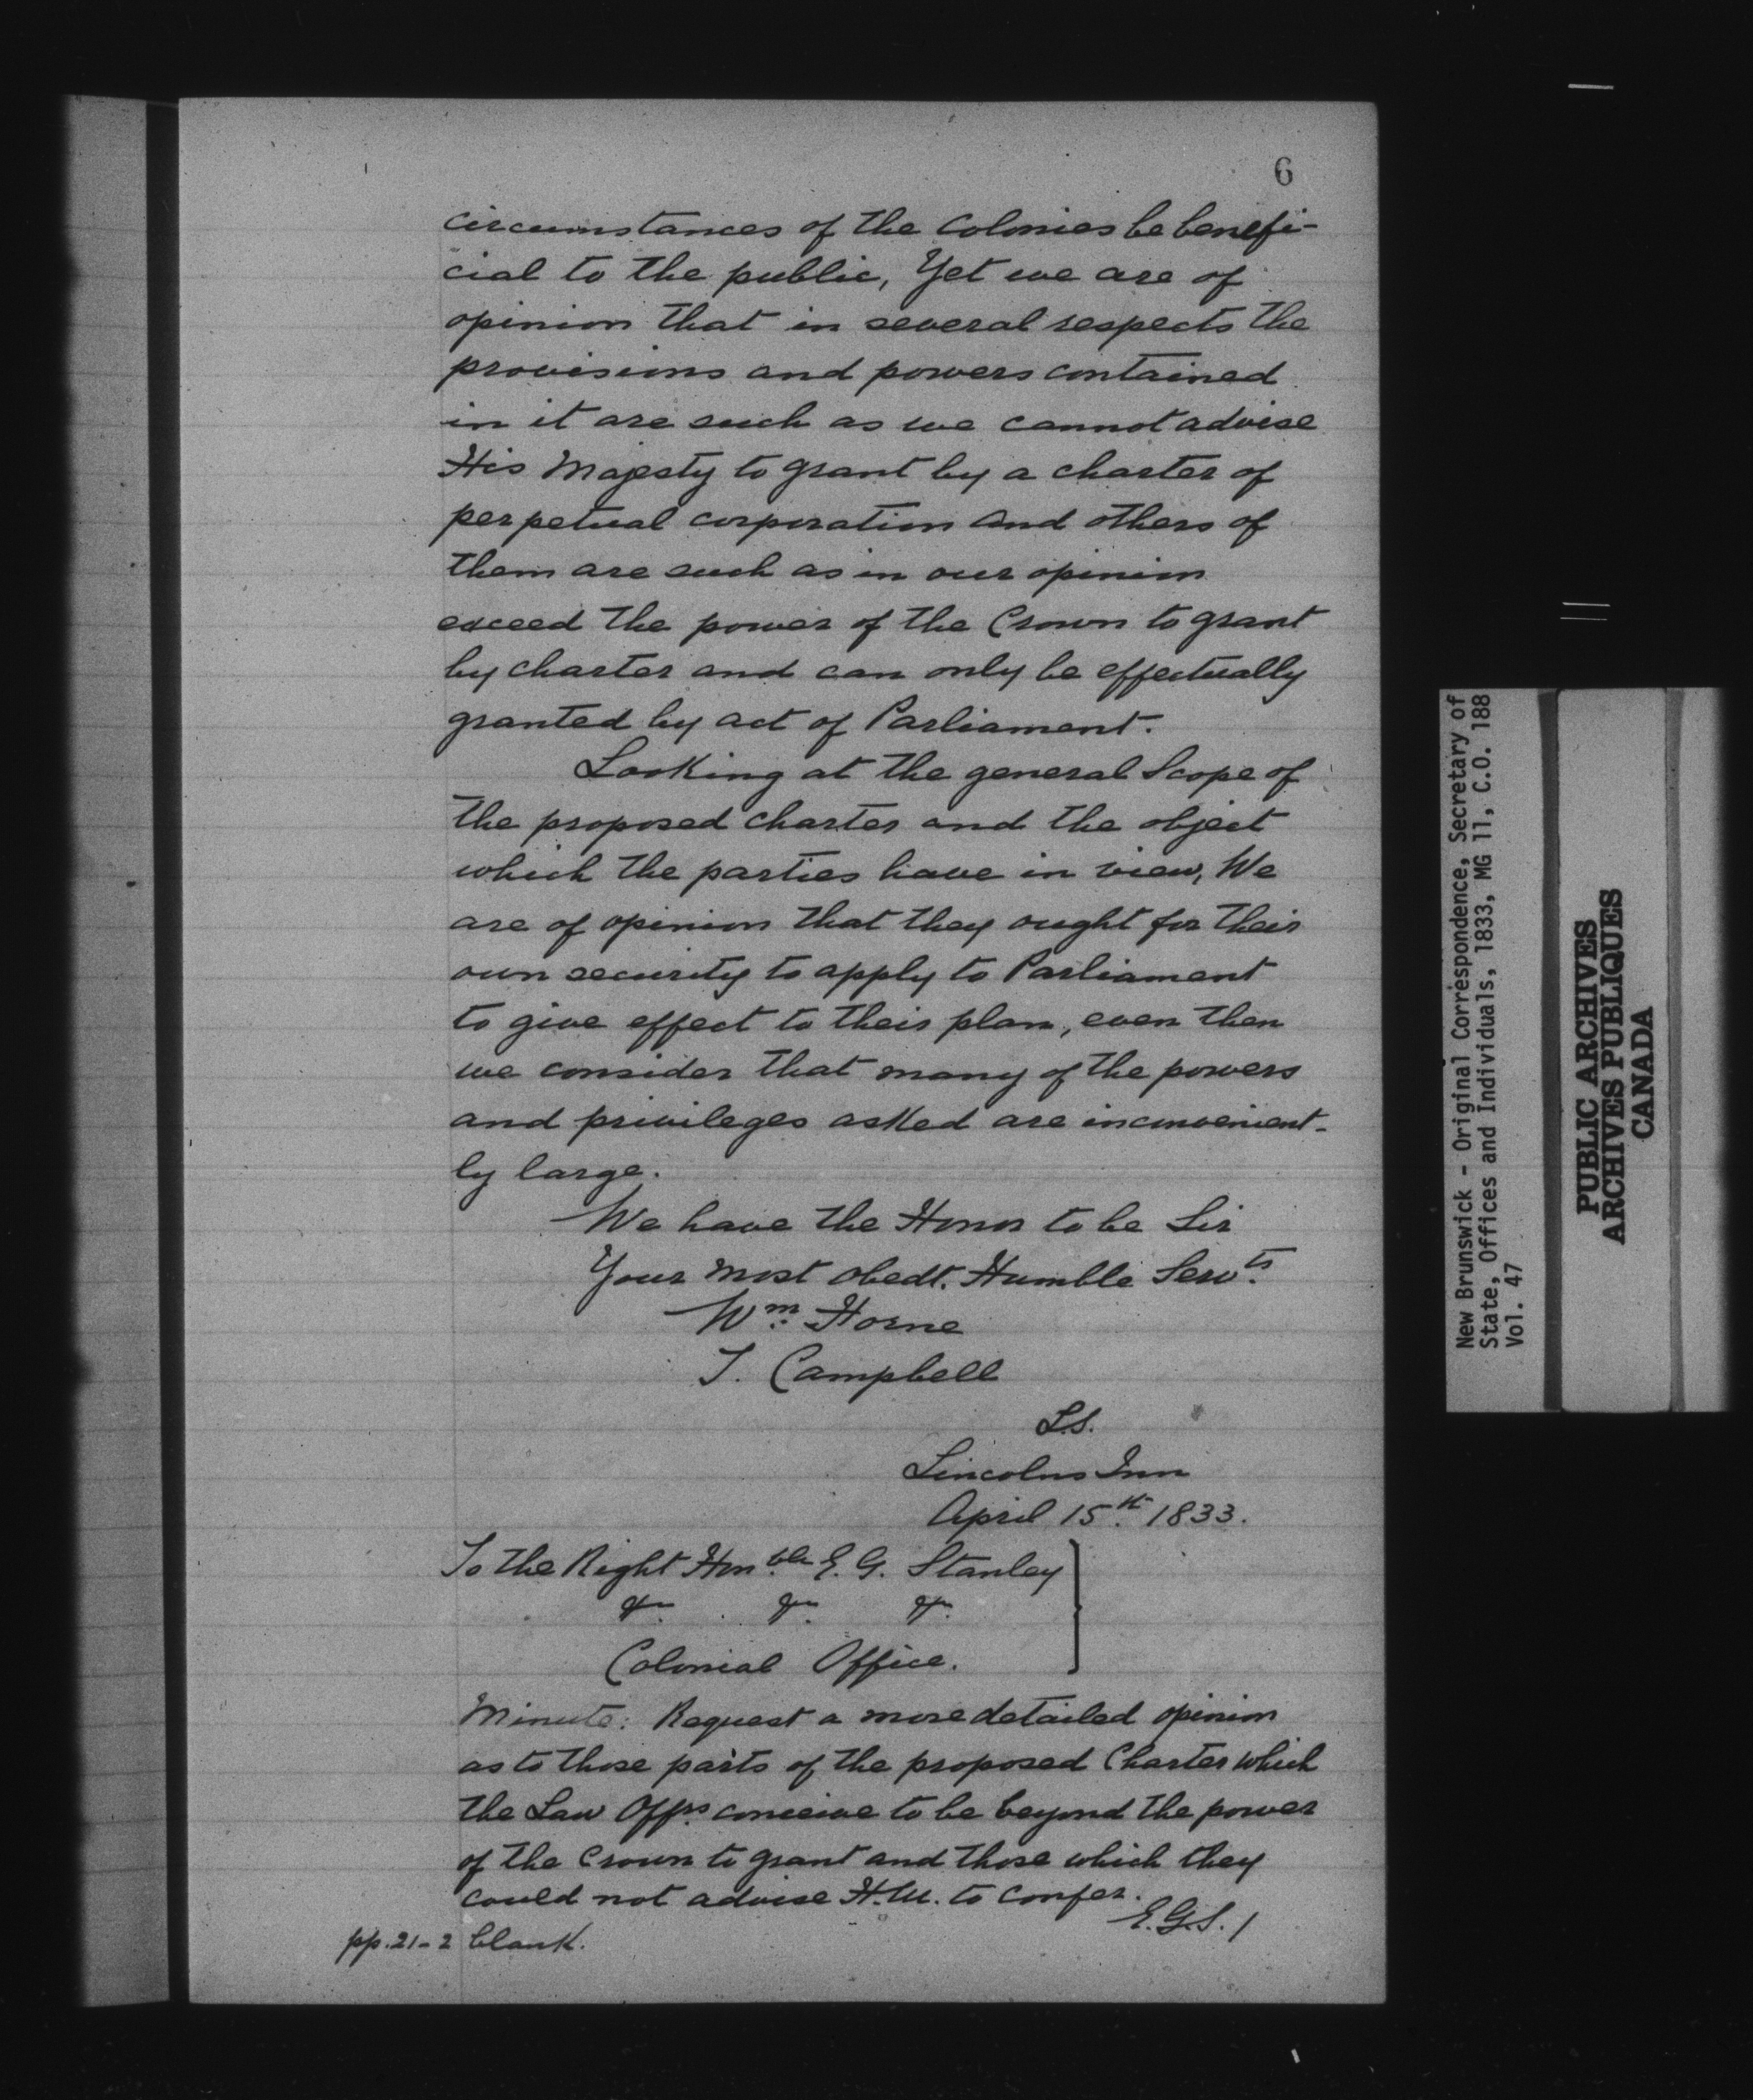 6
circumstances of the colonies be benefi-
cial to the public, Yet we are of
opinion that in several respects the
provisions and powers contained
in it are such as we cannot advise
His Majesty to grant by a charter of
perpetual corporation and others of
them are such as in our opinion
exceed the power of the Crown to grant
by charter and can only be effectually
granted by act of Parliament.
Looking at the general Scope of
the proposed charter and the object
which the parties have in view, We
are of opinion that they ought for their
own security to apply to Parliament
to give effect to their plan, even then
we consider that many of the powers
and privileges asked are inconvenient-
ly large.
We have the Honor to be Sir
Your most obedt. Humble Servts.
Wm. Horne
J. Campbell
L.S.
Lincolns Inn
April 15th. 1833.
To the Right Hon.ble E. G. Stanley
&c. &c. &c.
Colonial Office.
Minute: Request a more detailed opinion
as to those parts of the proposed Charter which
the Law Offrs. conceive to be beyond the power
of the Crown to grant and those which they
could not advise H.M. to confer.
E.G.S. /
pp. 21-2 blank.
New Brunswick - Original Correspondence, Secretary of
State, Offices and Individuals, 1833, MG 11, C.O. 188
Vol. 47
PUBLIC ARCHIVES
ARCHIVES PUBLIQUES
CANADA